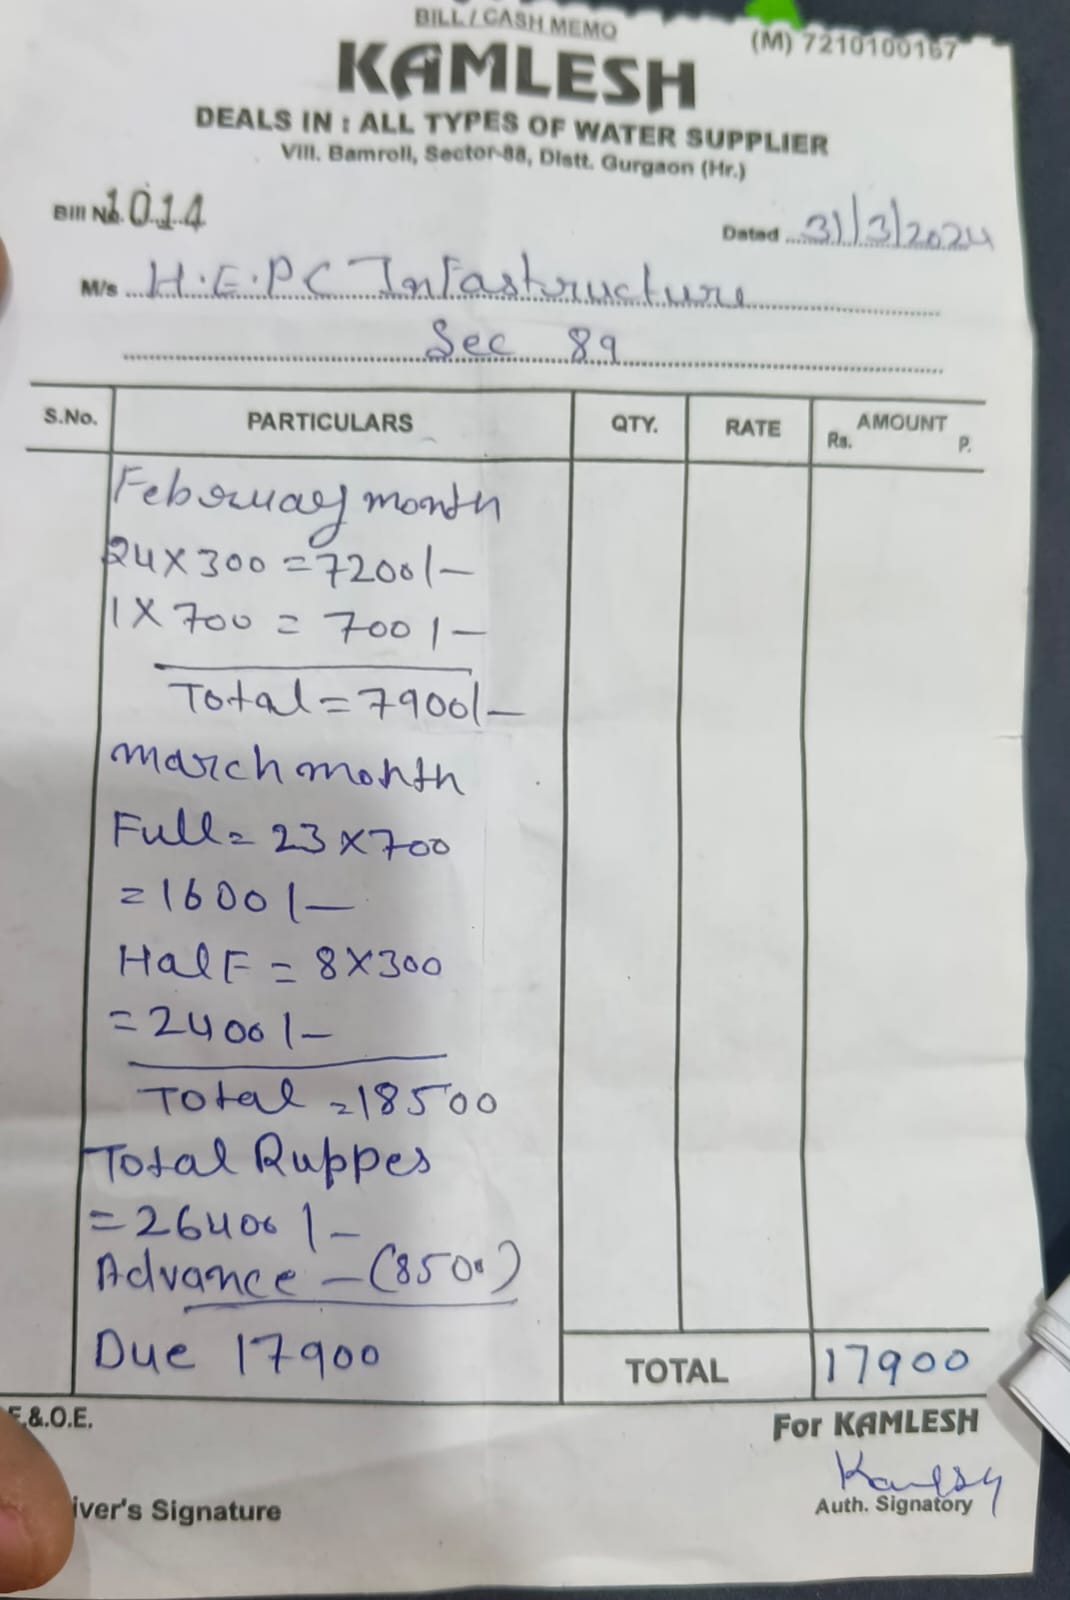 BILL / CASH MEMO
(M) 7210100167
KAMLESH
DEALS IN : ALL TYPES OF WATER SUPPLIER
Vill. Bamroli, Sector-88, Distt. Gurgaon (Hr.)
Bill No. 1014
Dated 31/3/2024
M/s H.E.PC Infastructure
Sec 89
S.No. PARTICULARS QTY. RATE AMOUNT
Rs. P.
February month
24X300 = 7200/-
1X700 = 700/-
Total = 7900/-
march month
Full = 23X700
= 1600/-
Half = 8X300
= 2400/-
Total = 18500
Total Ruppes
= 26400/-
Advance - (8500)
Due 17900
TOTAL 17900
E.&.O.E.
For KAMLESH
iver's Signature
Auth. Signatory